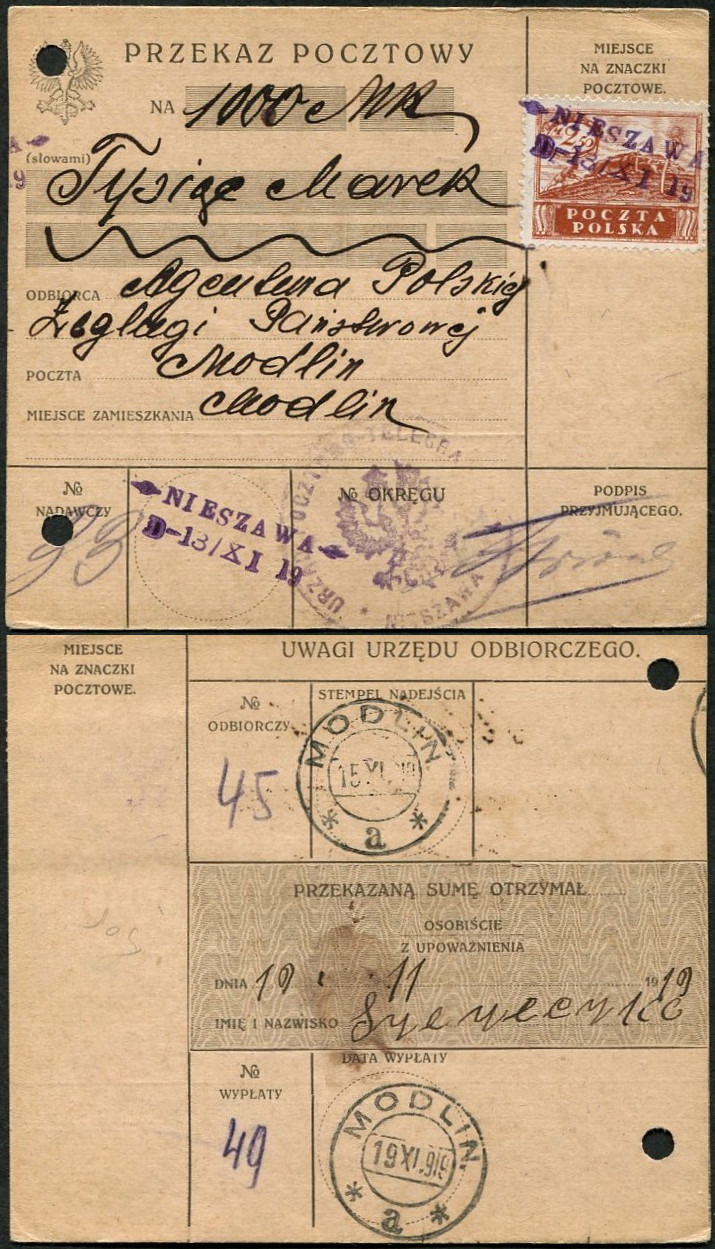 PRZEKAZ POCZTOWY
MIEJSCE
NA ZNACZKI
POCZTOWE.
NA 1000 MK
(słowami)
Tysiąc Marek
NIESZAWA
D-13/XI 19
POCZTA
POLSKA
ODBIORCA Agentura Polskiej
Żeglugi Państwowej
POCZTA Modlin
MIEJSCE ZAMIESZKANIA Modlin
№
NADAWCZY
NIESZAWA
D-13/XI 19
№ OKRĘGU
NIESZAWA
PODPIS
PRZYJMUJĄCEGO.
MIEJSCE
NA ZNACZKI
POCZTOWE.
UWAGI URZĘDU ODBIORCZEGO.
№
ODBIORCZY
45
STEMPEL NADEJŚCIA
MODLIN
15 XI 19
* a *
PRZEKAZANĄ SUMĘ OTRZYMAŁ
OSOBIŚCIE
Z UPOWAŻNIENIA
DNIA 19 11 1919
IMIĘ I NAZWISKO
№
WYPŁATY
49
DATA WYPŁATY
MODLIN
19 XI 919
* a *